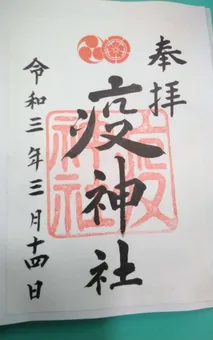 奉拝
疫神社
疫神社
令和三年三月十四日